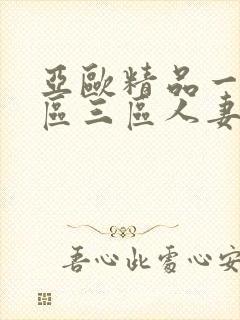 亞歐精品一
區三區人妻
吾心此處心安